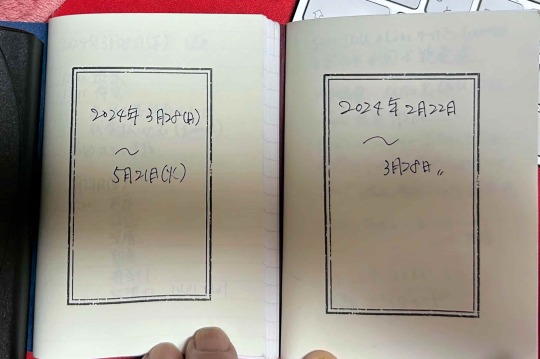 2024年 3月28(日)
〜
5月21日(火)
2024年2月22日
〜
3月28日〃